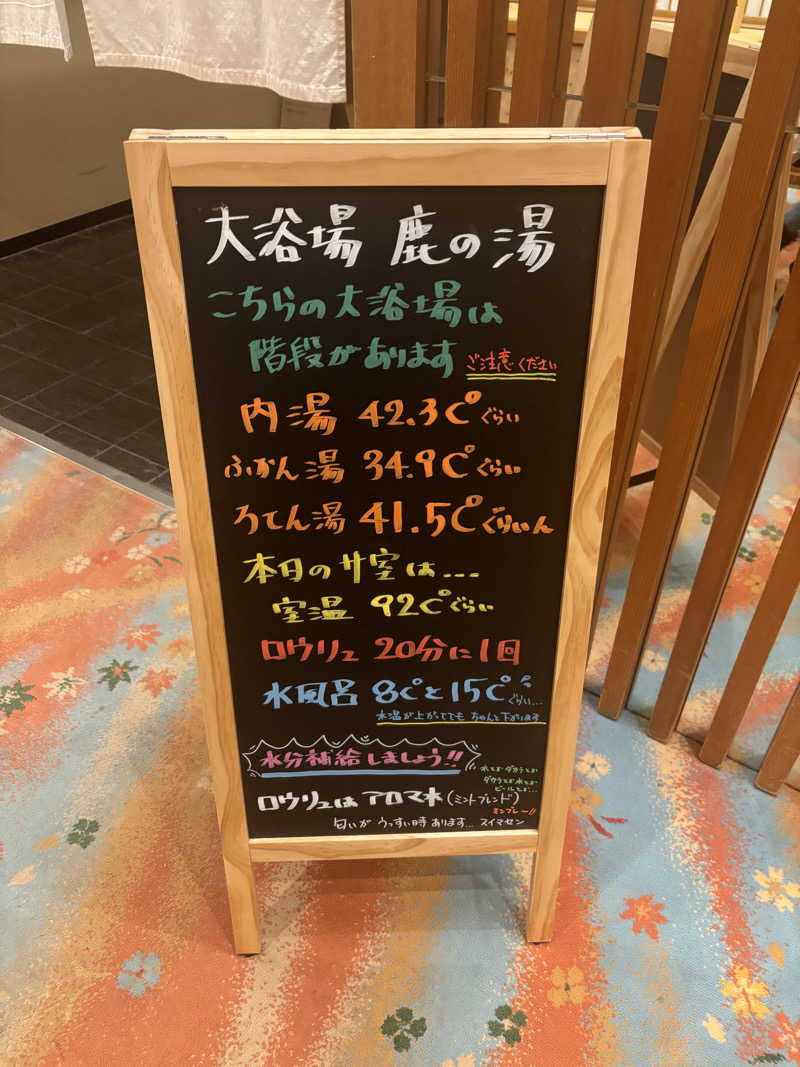 大浴場 鹿の湯
こちらの大浴場は
階段があります ご注意ください
内湯 42.3℃ぐらい
ふかん湯 34.9℃ぐらい
ろてん湯 41.5℃ぐらいん
本日のサ室は...
室温 92℃ぐらい
ロウリュ 20分に1回
水風呂 8℃と15℃ぐらい...
水温が上がってても ちゃんと下がります
水分補給しましょう!!
水とか ダカラとか
ダカラとか水とか
ビールとか...
ロウリュは アロマ水 (ミントブレンド)
ミンブレー!!
匂いが うっすい時 あります... スイマセン